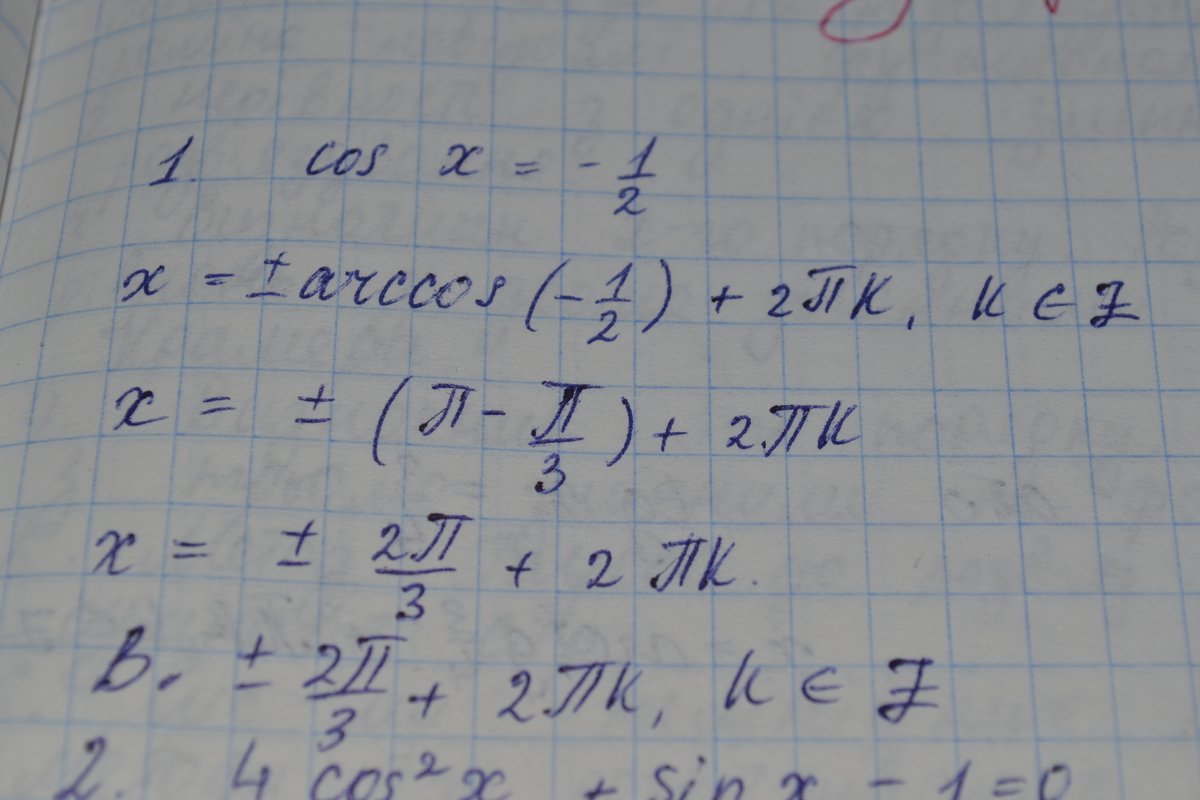 1. cos x = - 1/2
x = ± arccos (- 1/2) + 2πк, к ∈ Z
x = ± (π - π/3) + 2πк
x = ± 2π/3 + 2πк.
В. ± 2π/3 + 2πк, к ∈ Z
2. 4 cos² x + sin x - 1 = 0